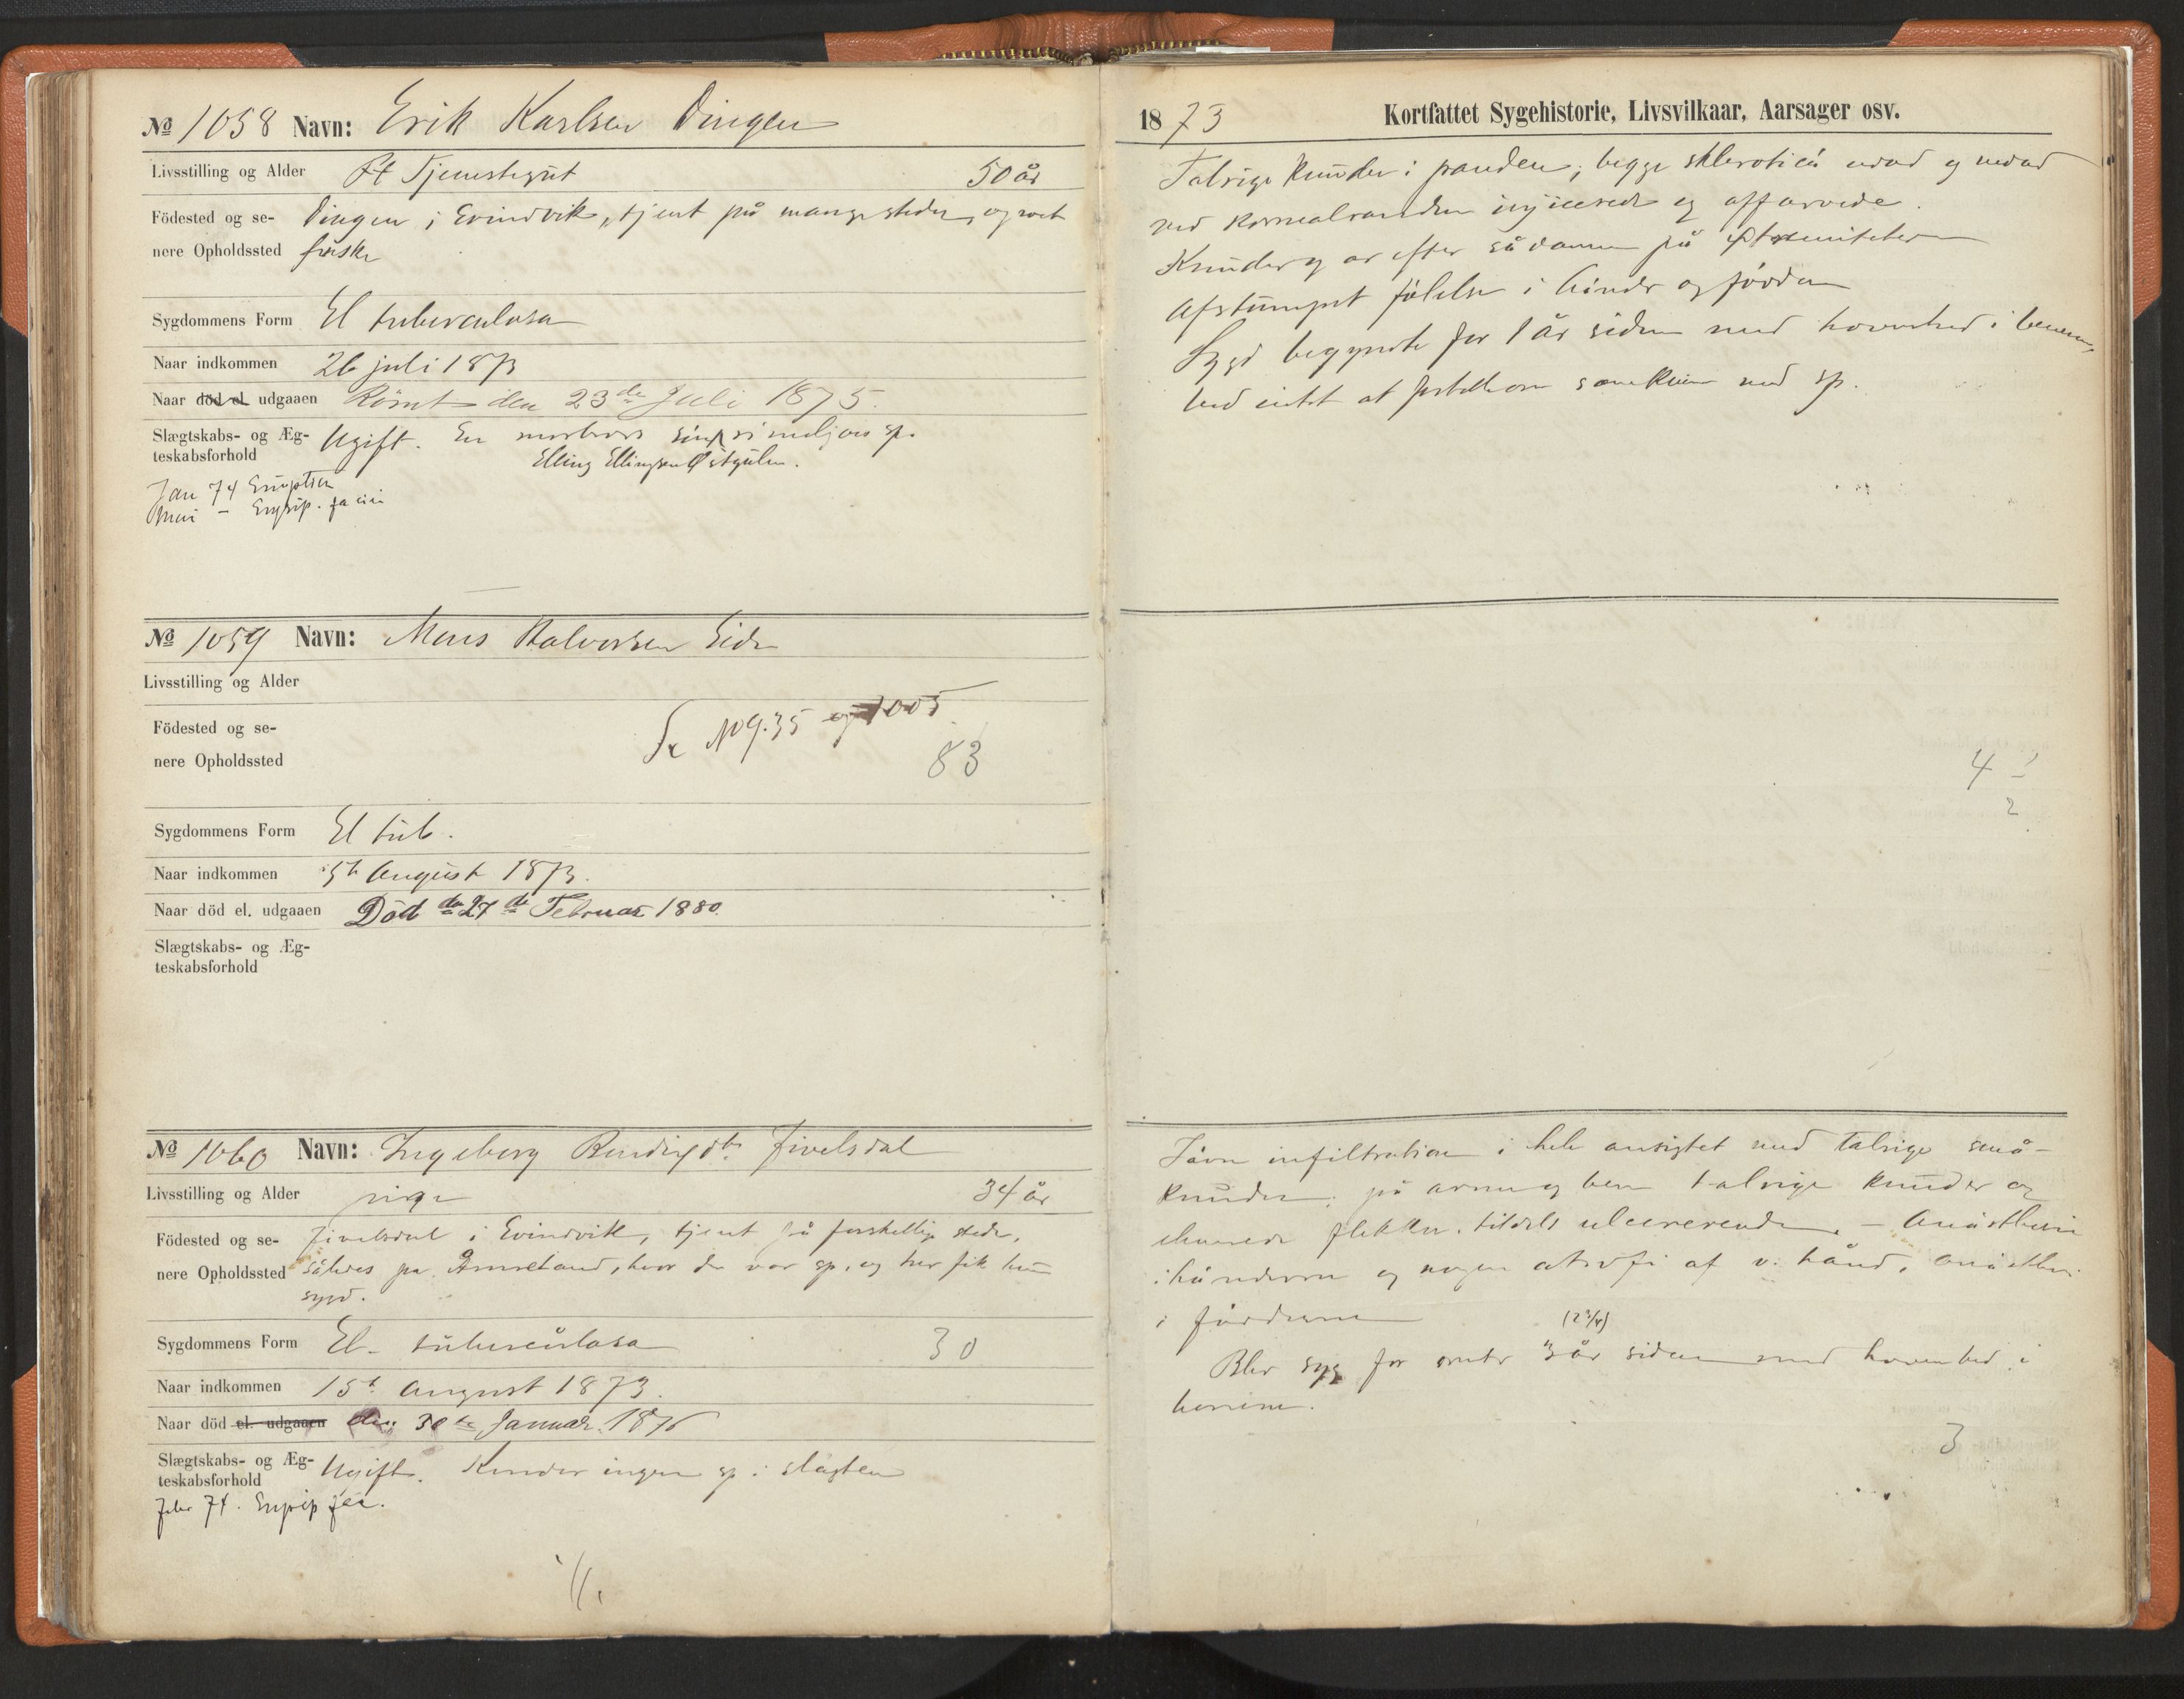 № 1058 Navn: Erik Karlsen Dingen
Livsstilling og Alder Tjenestegut 50 år
Födested og se- Dingen i Evindvik, tjent på mange steder, og
nere Opholdssted
Sygdommens Form El tuberculosa
Naar indkommen 26 juli 1873
Naar död el. udgaaen Römt den 23de Juli 1875.
Slægtskabs- og Æg- Ugift. En morbrors sp.
teskabsforhold Elling Ellingsen Østgulen.
Jan 74 Eruption
Mai – Erysip. faciei
№ 1059 Navn: Mons Halvorsen Eide
Livsstilling og Alder
Födested og se- Se No 935 og 1005
nere Opholdssted 83
Sygdommens Form El tub.
Naar indkommen 5t August 1873.
Naar död el. udgaaen Död den 27de Februar 1880.
Slægtskabs- og Æg-
teskabsforhold
№ 1060 Navn: Ingeborg Jivelsdal
Livsstilling og Alder pige 34 år
Födested og se- Jivelsdal i Evindvik, tjent på forskellige steder,
nere Opholdssted således på hvor der var sp. og her fik hun
sygd.
Sygdommens Form El. tuberculosa 30
Naar indkommen 15t August 1873.
Naar död el. udgaaen den 30te Januar 1876
Slægtskabs- og Æg- Ugift. Kender ingen sp i slægten
teskabsforhold
Febr 74. Erysip fac.
1873 Kortfattet Sygehistorie, Livsvilkaar, Aarsager osv.
Talrige knuder i panden; begge sklerotica udad og nedad
ved kornealranden injicerede og affarvede.
Knuder og ar efter sådanne på extremiteterne
Afstumpet følelse i hænder og fødder
Sygd begyndte for 1 år siden med hovenhed i benene,
Ved intet at fortælle om samkvem med sp.
4 1
2
Jævn infiltration i hele ansigtet med talrige små-
knuder; på arme og ben talrige knuder og
flekker, tildels ulcererende. – Anæsthesi
i hænderne og nogen atrofi af v. hånd, anæsthesi
i fødderne
(2 3/4)
Blev syg for omtr 3 år siden med hovenhed i
benene.
3